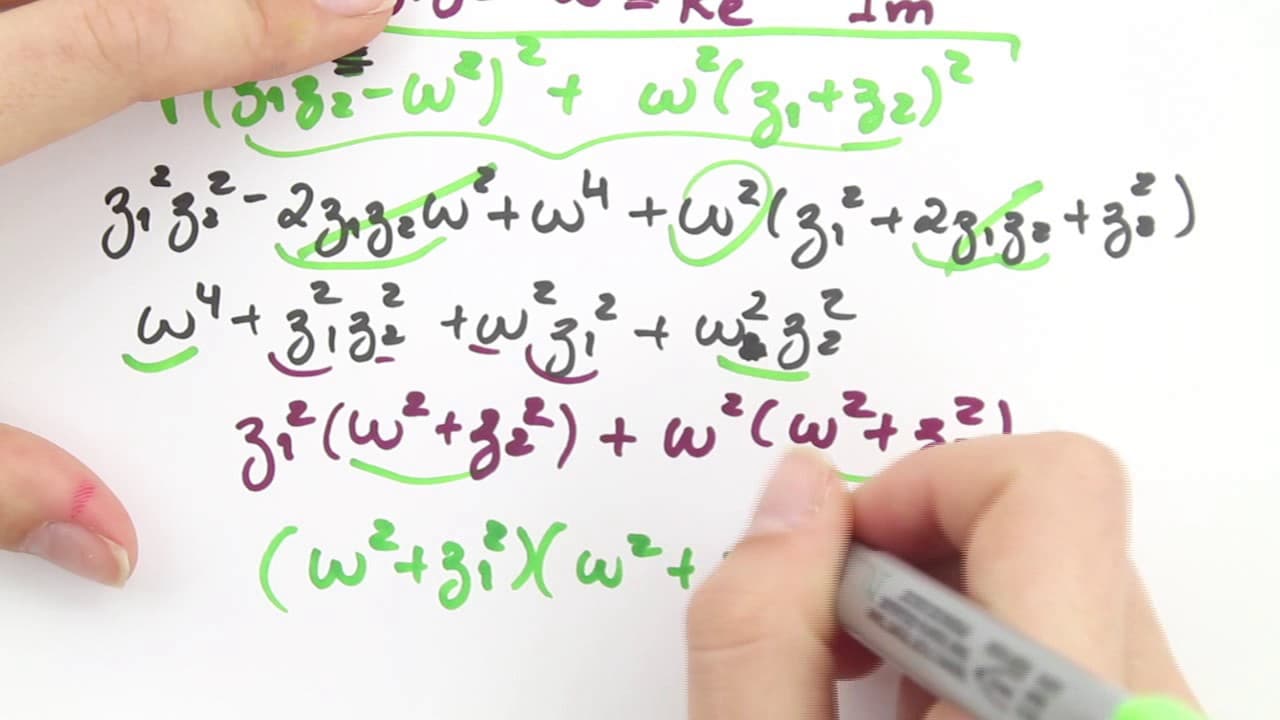 ω = Re Im
(z₁z₂ - ω²)² + ω²(z₁+z₂)²
z₁²z₂² - 2z₁z₂ω² + ω⁴ + ω²(z₁² + 2z₁z₂ + z₂²)
ω⁴ + z₁²z₂² + ω²z₁² + ω²z₂²
z₁²(ω²+z₂²) + ω²(ω²+z₂²)
(ω²+z₁²)(ω²+